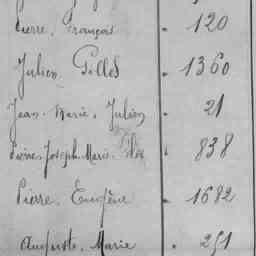 Pierre, François 120
Julien, Gilles 1360
Jean-Marie, Julien 21
Pierre-Joseph-Marie 838
Pierre, Eugène 1682
Auguste, Marie 251